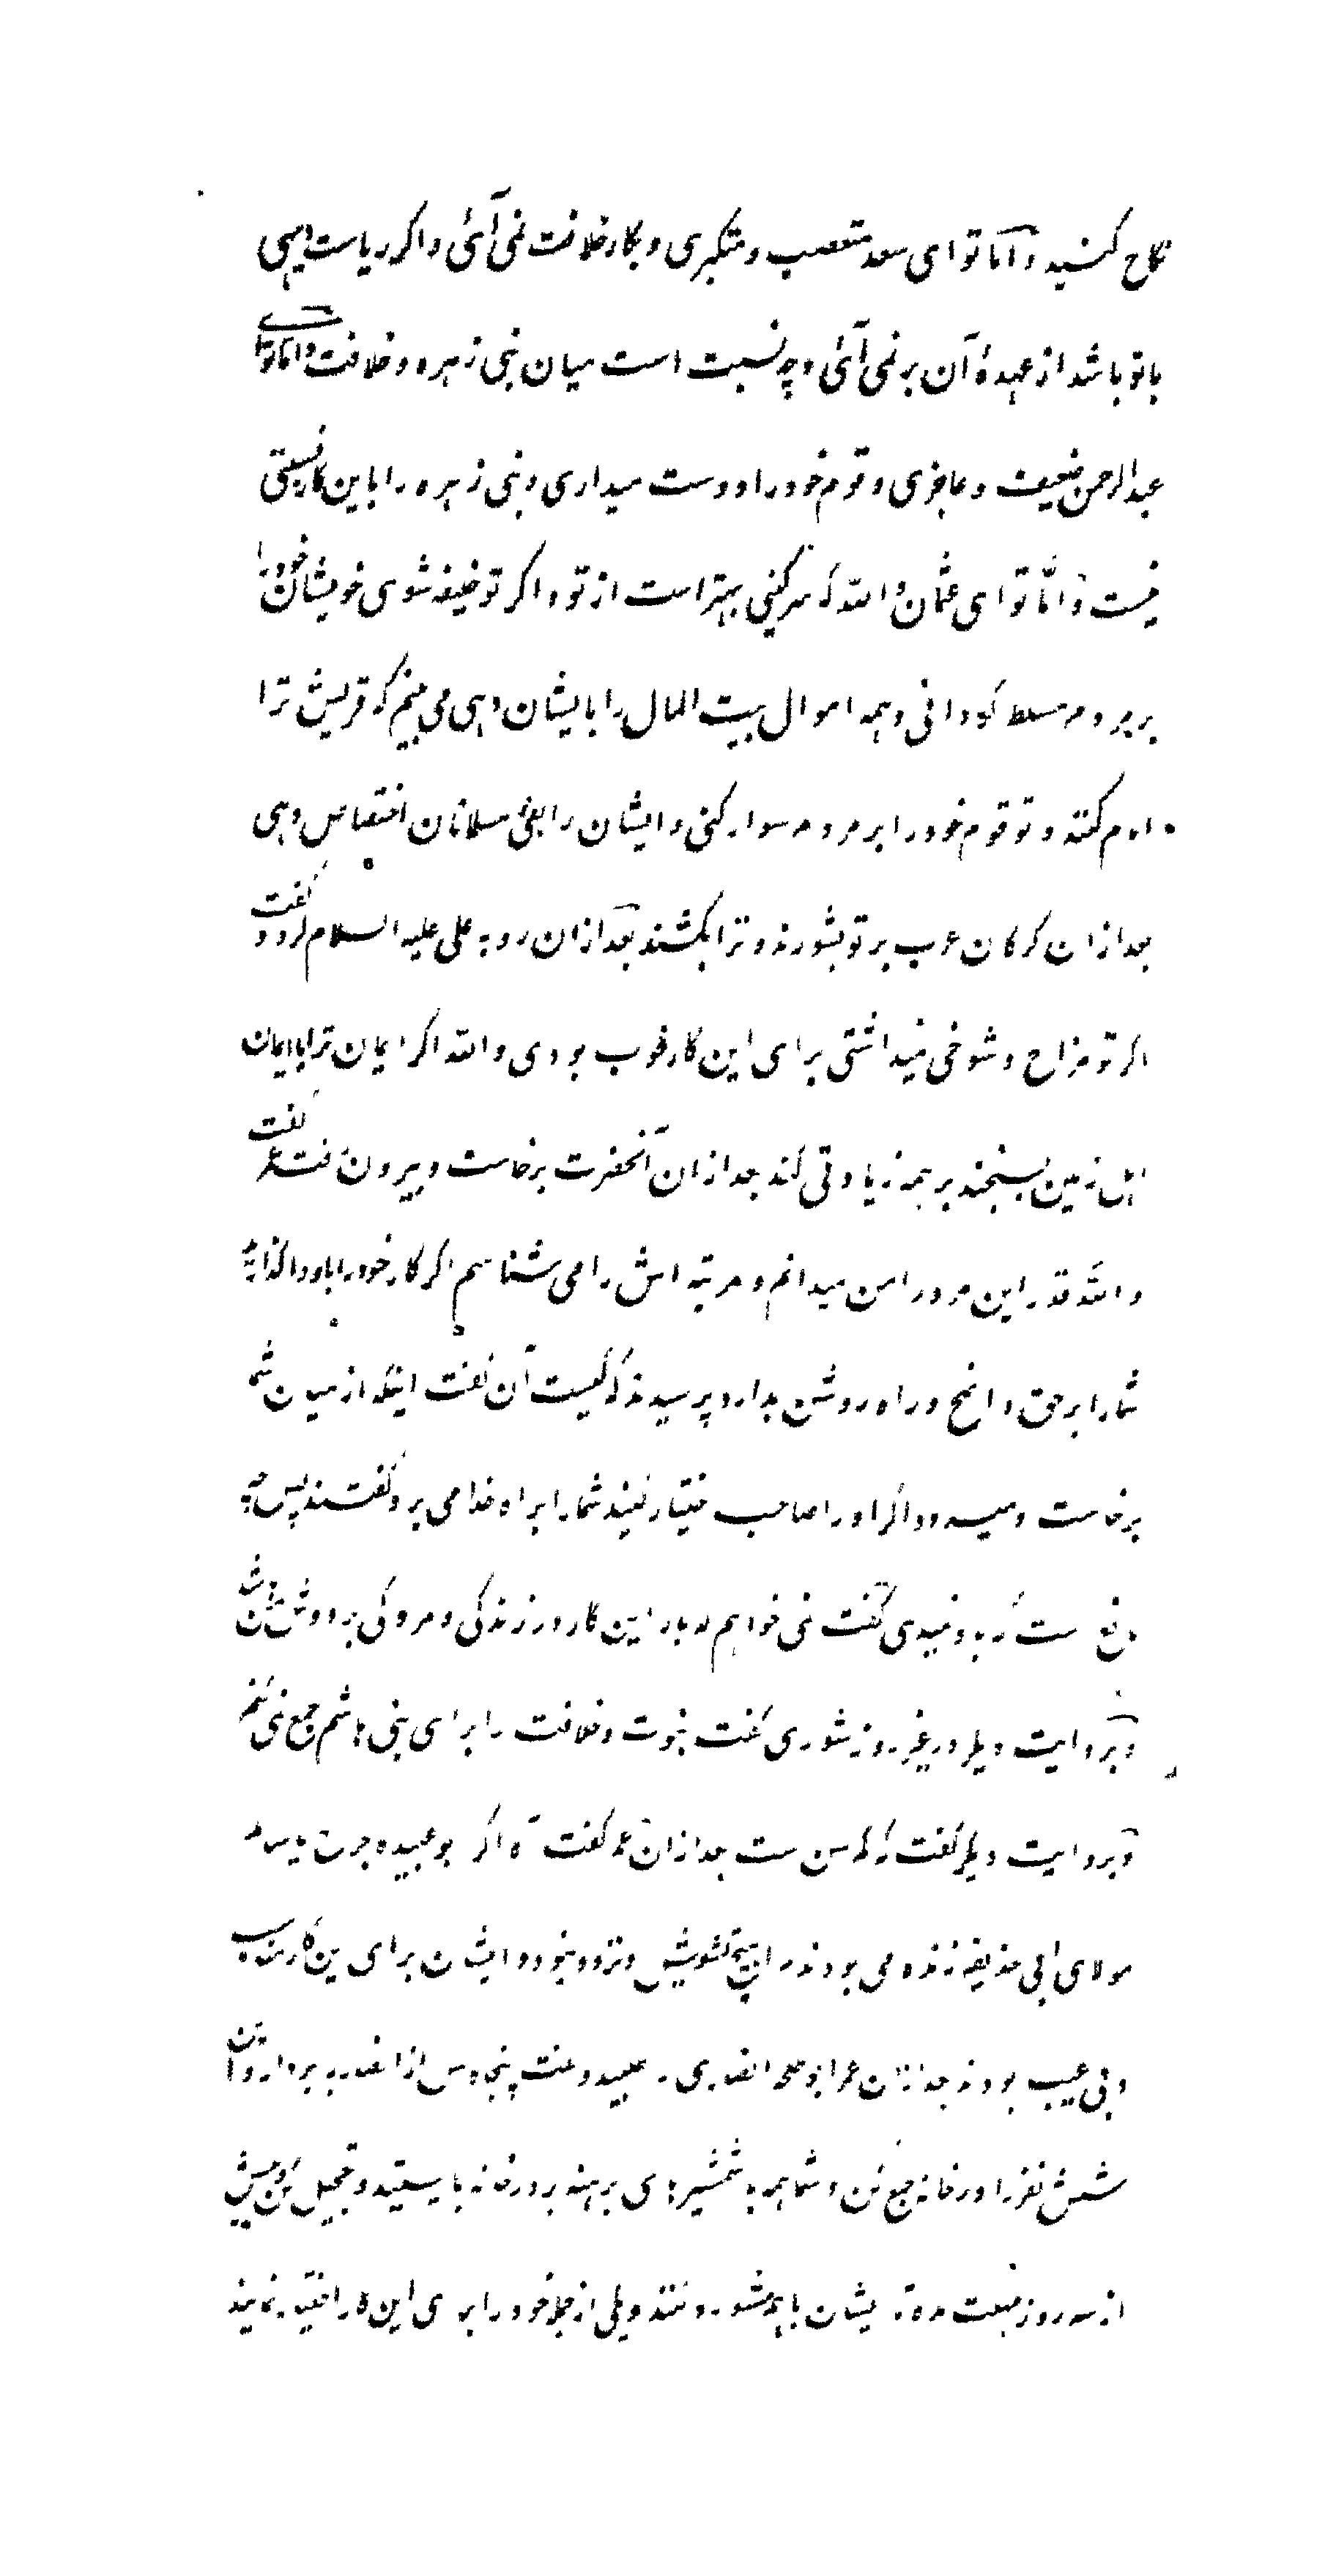 نکاح کنید و اما تو ای سعد متعصب و متکبری و بکار خلافت نمی آئی و اگر ریاست دهی
با تو باشد از عهدهٔ آن بر نمی آئی و چه نسبت است میان بنی زهره و خلافت و اما تو ای
عبدالرحمن ضعیف و عاجزی و قوم خود را دوست میداری و بنی زهره را با این کار نسبتی
نیست و امّا تو ای عثمان و الله که سرگینی بهتر است از تو و اگر تو خلیفه شوی خویشان خود را
بر مردم مسلط گردانی و همه اموال بیت المال را بایشان دهی می بینم که قریش ترا
امام کنند و تو قوم خود را بر مردم سوار کنی و ایشان را بفئ مسلمانان اختصاص دهی
بعد از آن گرگان عرب بر تو بشورند و ترا بکشند بعد از ان رو به علی علیه السلام کرد و گفت
اگر تو مزاح و شوخی نمیداشتی برای این کار خوب بودی و الله اگر ایمان ترا با ایمان
اهل زمین بسنجند بر همه زیادتی کند بعد از ان آنحضرت برخاست و بیرون رفت عمر گفت
و الله قدر این مرد را من میدانم و مرتبه اش را می شناسم اگر کار خود را باو واگذارید
شما را بر حق واضح و راه روشن بدارد پرسیدند که کیست آن گفت اینکه از میان شما
برخاست و میرود اگر او را صاحب اختیار کنید شما را براه خدا می برد گفتند پس چه
مانع است که به او نمیدی گفت نمی خواهم که بار این کار در زندگی و مردگی بر دوش من باشد
و بروایت دیگر در غیر روز شوری گفت نبوت و خلافت را برای بنی هاشم جمع نمی کنم
و بروایت دیگر گفت که کم سن است بعد از ان عمر گفت آه اگر ابو عبیده جراح یا سالم
مولای ابی حذیفه زنده می بودند مرا هیچ تشویش و تردد نبود و ایشان برای این کار مناسب
و بی عیب بودند بعد از ان عمر ابو طلحه انصاری را طلبید و گفت پنجاه کس از انصار بردار و آن
شش نفر را در خانه جمع کن و شما همه با شمشیرهای برهنه بر در خانه بایستید و تعجیل کن و بیش
از سه روز مهلت مده تا ایشان با هم مشورت کنند و یکی از جمله خود را برای این کار اختیار نمایند